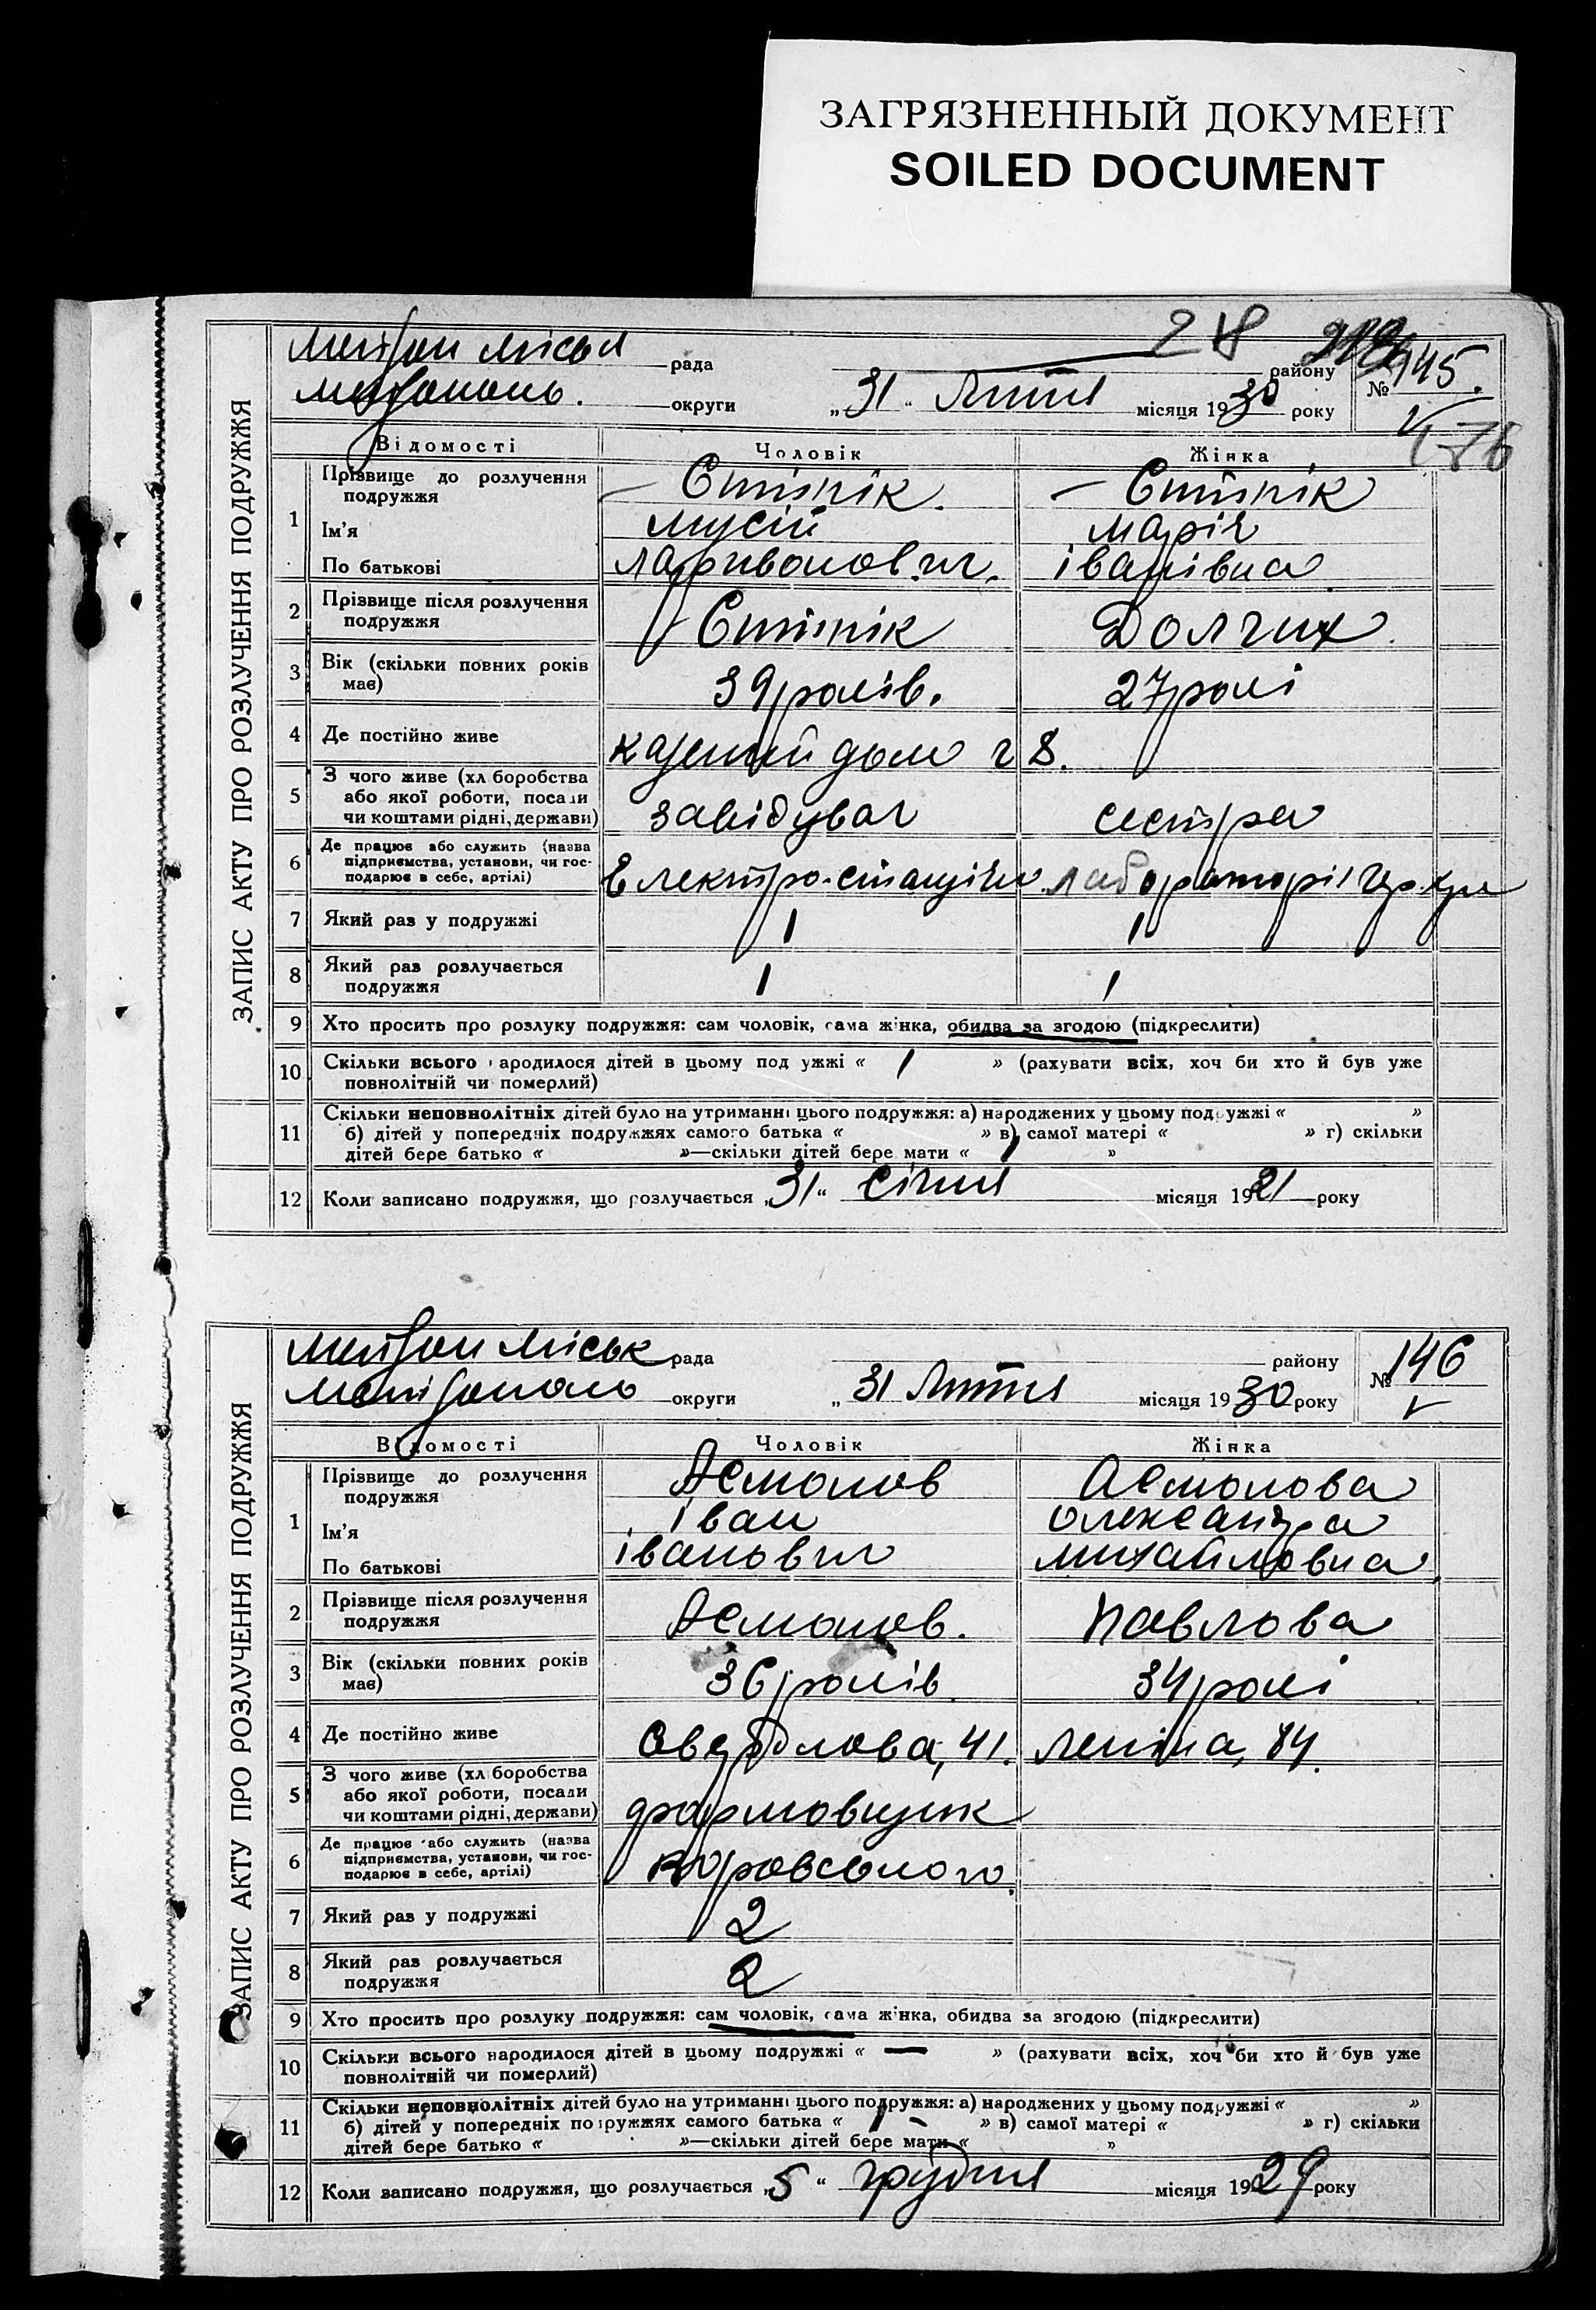 ЗАГРЯЗНЕННЫЙ ДОКУМЕНТ
SOILED DOCUMENT
ЗАПИС АКТУ ПРО РОЗЛУЧЕННЯ ПОДРУЖЖЯ
рада району № 145.
округи „31“ місяця 1930 року
Відомості Чоловік Жінка
1 Прізвище до розлучення подружжя
Ім'я Мусій Марія
По батькові Іванівна
2 Прізвище після розлучення подружжя Долгих
3 Вік (скільки повних років має) 39 років. 27 років
4 Де постійно живе дом 8.
5 З чого живе (хліборобства або якої роботи, посади чи коштами рідні, держави) завідувач сестра
6 Де працює або служить (назва підприємства, установи, чи господарює в себе, артілі) Електро-станція лабораторія
7 Який раз у подружжі 1 1
8 Який раз розлучається подружжя 1 1
9 Хто просить про розлуку подружжя: сам чоловік, сама жінка, обидва за згодою (підкреслити)
10 Скільки всього народилося дітей в цьому подружжі « 1 » (рахувати всіх, хоч би хто й був уже
повнолітній чи померлий)
11 Скільки неповнолітніх дітей було на утриманні цього подружжя: а) народжених у цьому подружжі « »
б) дітей у попередніх подружжях самого батька « » в) самої матері « » г) скільки
дітей бере батько « »—скільки дітей бере мати « 1 »
12 Коли записано подружжя, що розлучається „31“ січня місяця 1921 року
ЗАПИС АКТУ ПРО РОЗЛУЧЕННЯ ПОДРУЖЖЯ
міськ рада району № 146
округи „31 місяця 1930 року
Відомості Чоловік Жінка
1 Прізвище до розлучення подружжя Асмолов Асмолова
Ім'я Іван Олександра
По батькові Іванович Михайловна
2 Прізвище після розлучення подружжя Асмолов. Павлова
3 Вік (скільки повних років має) 36 років 34 роки
4 Де постійно живе Свердлова, 41. Леніна, 84.
5 З чого живе (хліборобства або якої роботи, посади чи коштами рідні, держави) формовщик
6 Де працює або служить (назва підприємства, установи, чи господарює в себе, артілі) Воровського
7 Який раз у подружжі 2
8 Який раз розлучається подружжя 2
9 Хто просить про розлуку подружжя: сам чоловік, сама жінка, обидва за згодою (підкреслити)
10 Скільки всього народилося дітей в цьому подружжі « — » (рахувати всіх, хоч би хто й був уже
повнолітній чи померлий)
11 Скільки неповнолітніх дітей було на утриманні цього подружжя: а) народжених у цьому подружжі « »
б) дітей у попередніх подружжях самого батька « » в) самої матері « » г) скільки
дітей бере батько « »—скільки дітей бере мати « »
12 Коли записано подружжя, що розлучається „5“ грудня місяця 1929 року